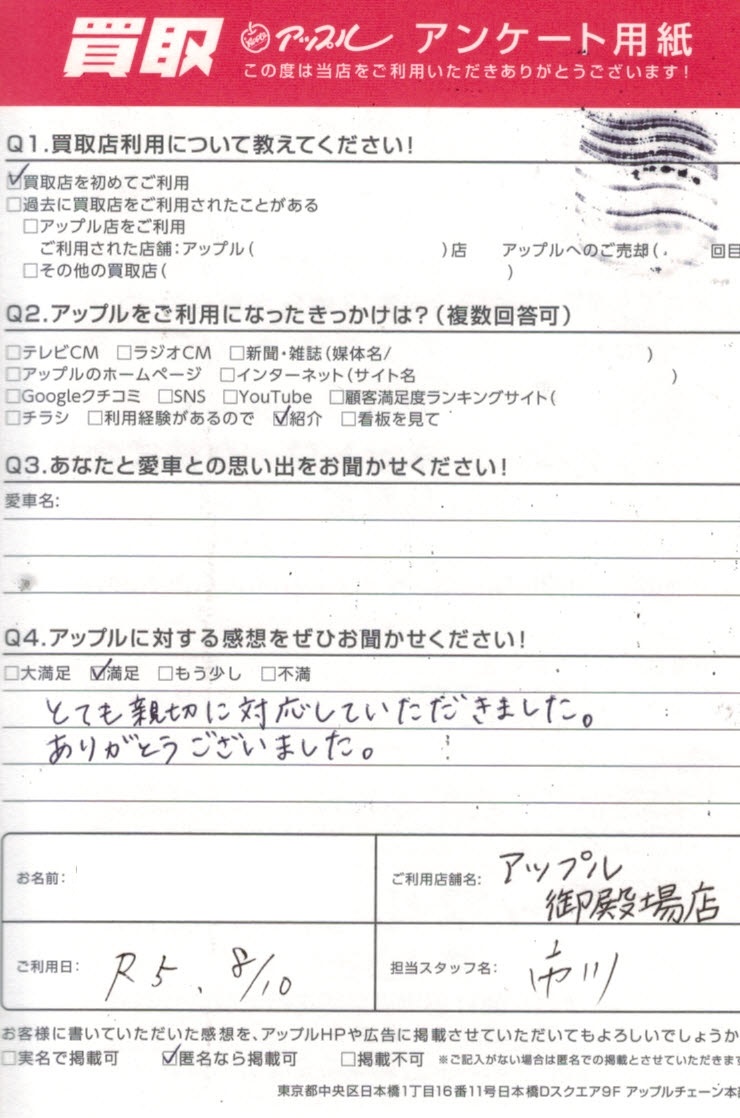 買取 アップル アンケート用紙
この度は当店をご利用いただきありがとうございます!
Q1.買取店利用について教えてください!
☑買取店を初めてご利用
□過去に買取店をご利用されたことがある
□アップル店をご利用
ご利用された店舗:アップル( )店 アップルへのご売却( 回目
□その他の買取店( )
Q2.アップルをご利用になったきっかけは?(複数回答可)
□テレビCM □ラジオCM □新聞・雑誌(媒体名/ )
□アップルのホームページ □インターネット(サイト名 )
□Googleクチコミ □SNS □YouTube □顧客満足度ランキングサイト(
□チラシ □利用経験があるので ☑紹介 □看板を見て
Q3.あなたと愛車との思い出をお聞かせください!
愛車名:
Q4.アップルに対する感想をぜひお聞かせください!
□大満足 ☑満足 □もう少し □不満
とても親切に対応していただきました。
ありがとうございました。
お名前:
ご利用店舗名: アップル
御殿場店
ご利用日: R5. 8/10
担当スタッフ名: 市川
お客様に書いていただいた感想を、アップルHPや広告に掲載させていただいてもよろしいでしょうか
□実名で掲載可 ☑匿名なら掲載可 □掲載不可 ※ご記入がない場合は匿名での掲載とさせていただきます
東京都中央区日本橋1丁目16番11号日本橋Dスクエア9F アップルチェーン本部